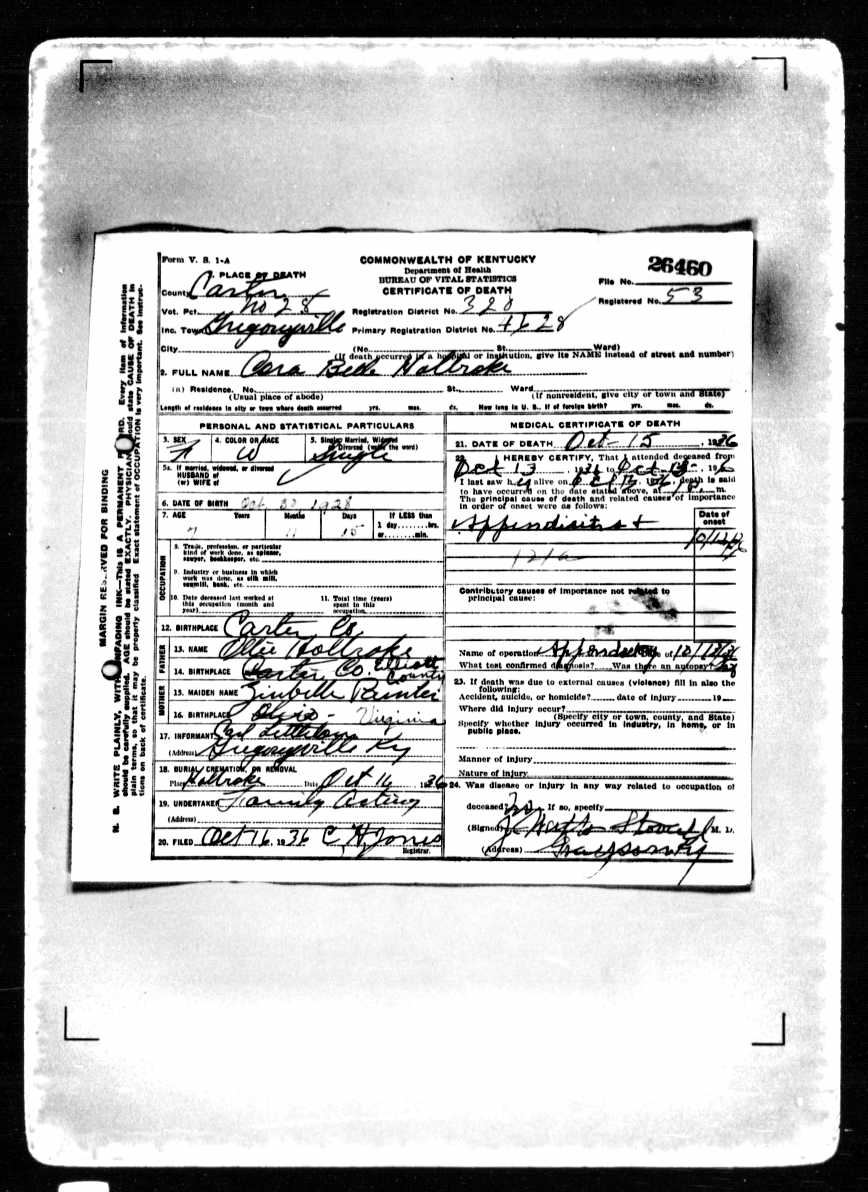 Form V. S. 1-A
COMMONWEALTH OF KENTUCKY
Department of Health
BUREAU OF VITAL STATISTICS
CERTIFICATE OF DEATH
File No. 26460
Registered No. 53
1. PLACE OF DEATH
County Carter
Vot. Pct. No 28
Registration District No. 320
Inc. Town Gregoryville
Primary Registration District No.
City (No. St. Ward)
(If death occurred in a hospital or institution, give its NAME instead of street and number)
2. FULL NAME Holbroke
(a) Residence. No. St. Ward
(Usual place of abode) (If nonresident, give city or town and State)
Length of residence in city or town where death occurred yrs. mos. ds. How long in U. S., if of foreign birth? yrs. mos. ds.
PERSONAL AND STATISTICAL PARTICULARS
3. SEX F
4. COLOR OR RACE W
5. Single, Married, Widowed or Divorced (write the word) Single
5a. If married, widowed, or divorced
HUSBAND of
(or) WIFE of
6. DATE OF BIRTH 1928
7. AGE Years Months Days If LESS than
7 11 15 1 day hrs.
or min.
OCCUPATION
8. Trade, profession, or particular
kind of work done, as spinner,
sawyer, bookkeeper, etc.
9. Industry or business in which
work was done, as silk mill,
sawmill, bank, etc.
10. Date deceased last worked at
this occupation (month and
year)
11. Total time (years)
spent in this
occupation
12. BIRTHPLACE Carter Co
FATHER
13. NAME Ollie Holbroke
14. BIRTHPLACE Carter Co. Elliott County
MOTHER
15. MAIDEN NAME
16. BIRTHPLACE Ohio - Virginia
17. INFORMANT
(Address) Gregoryville Ky
18. BURIAL, CREMATION, OR REMOVAL
Place Holbroke Date Oct 16 1936
19. UNDERTAKER Family Acting
(Address)
20. FILED Oct 16, 1936 C H Jones
Registrar.
MEDICAL CERTIFICATE OF DEATH
21. DATE OF DEATH Oct 15, 1936
22. I HEREBY CERTIFY, That I attended deceased from
Oct 13, 1936 to Oct
I last saw h er alive on death is said
to have occurred on the date stated above, at m.
The principal cause of death and related causes of importance
in order of onset were as follows:
Date of onset
Appendicitis
121a
Contributory causes of importance not related to
principal cause:
Name of operation Date of
What test confirmed diagnosis? Was there an autopsy?
23. If death was due to external causes (violence) fill in also the
following:
Accident, suicide, or homicide? date of injury 19
Where did injury occur?
(Specify city or town, county, and State)
Specify whether injury occurred in industry, in home, or in
public place.
Manner of injury
Nature of injury
24. Was disease or injury in any way related to occupation of
deceased? No If so, specify
(Signed) Stovall M. D.
(Address) Grayson Ky
MARGIN RESERVED FOR BINDING
N. B. WRITE PLAINLY, WITH UNFADING INK—This IS A PERMANENT RECORD. Every item of information
should be carefully supplied. AGE should be stated EXACTLY. PHYSICIANS should state CAUSE OF DEATH in
plain terms, so that it may be properly classified. Exact statement of OCCUPATION is very important. See instruc-
tions on back of certificate.